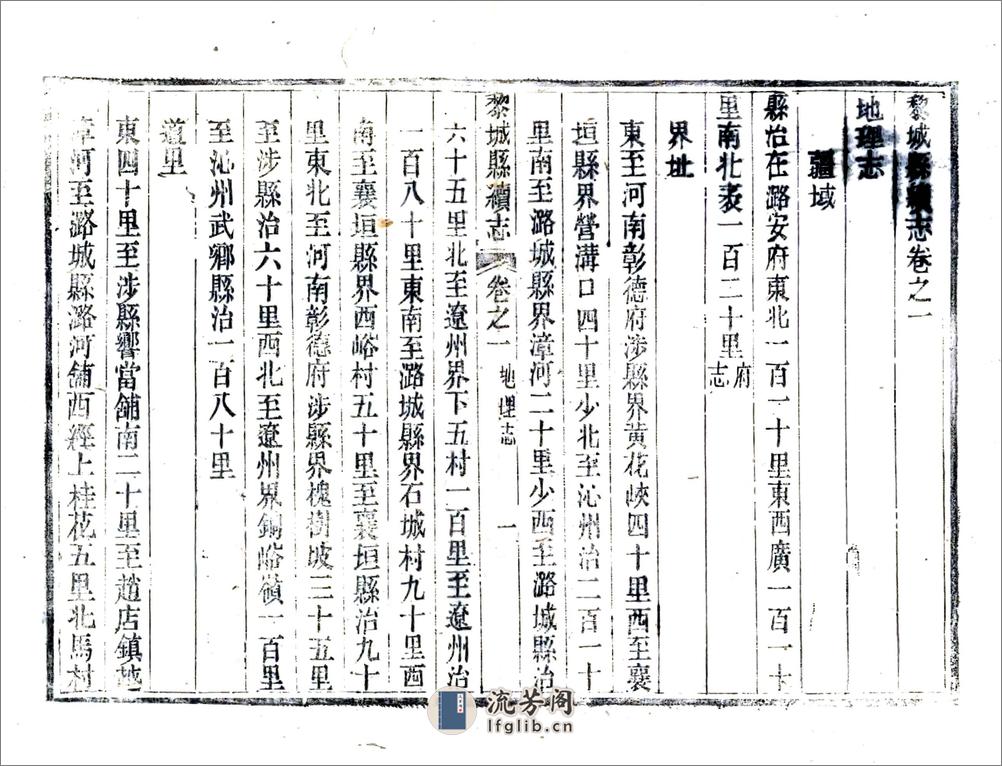 黎城縣續志卷之一
地理志
疆域
縣治在潞安府東北一百一十里東西廣一百一十
里南北袤一百二十里府志
界址
東至河南彰德府涉縣界黄花峽四十里西至襄
垣縣界營溝口四十里少北至沁州治二百一十
里南至潞城縣界漳河二十里少西至潞城縣治
黎城縣續志 卷之一 地理志 一
六十五里北至遼州界下五村一百里至遼州治
一百八十里東南至潞城縣界石城村九十里西
南至襄垣縣界西峪村五十里至襄垣縣治九十
里東北至河南彰德府涉縣界槐樹坡三十五里
至涉縣治六十里西北至遼州界銅峪嶺一百里
至沁州武鄉縣治一百八十里
道里
東四十里至涉縣響當舖南二十里至趙店鎮
漳河至潞城縣潞河舖西經上桂花五里北馬村
流芳阁
lfglib.cn